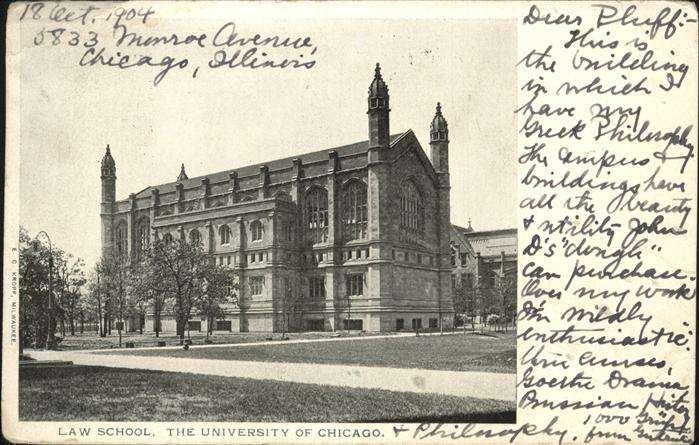 18 Oct. 1904
5833 Monroe Avenue,
Chicago, Illinois
Dear Pluffi-
This is
the building
in which I
have my
Greek Philosophy
The Campus &
buildings have
all the beauty
& utility John
D's "dough"
can purchase.
Over my work
I'm wildly
enthusiastic.
Goethe Drama
Prussian
& Philosophy,
E. C. KROPP, MILWAUKEE.
LAW SCHOOL, THE UNIVERSITY OF CHICAGO.